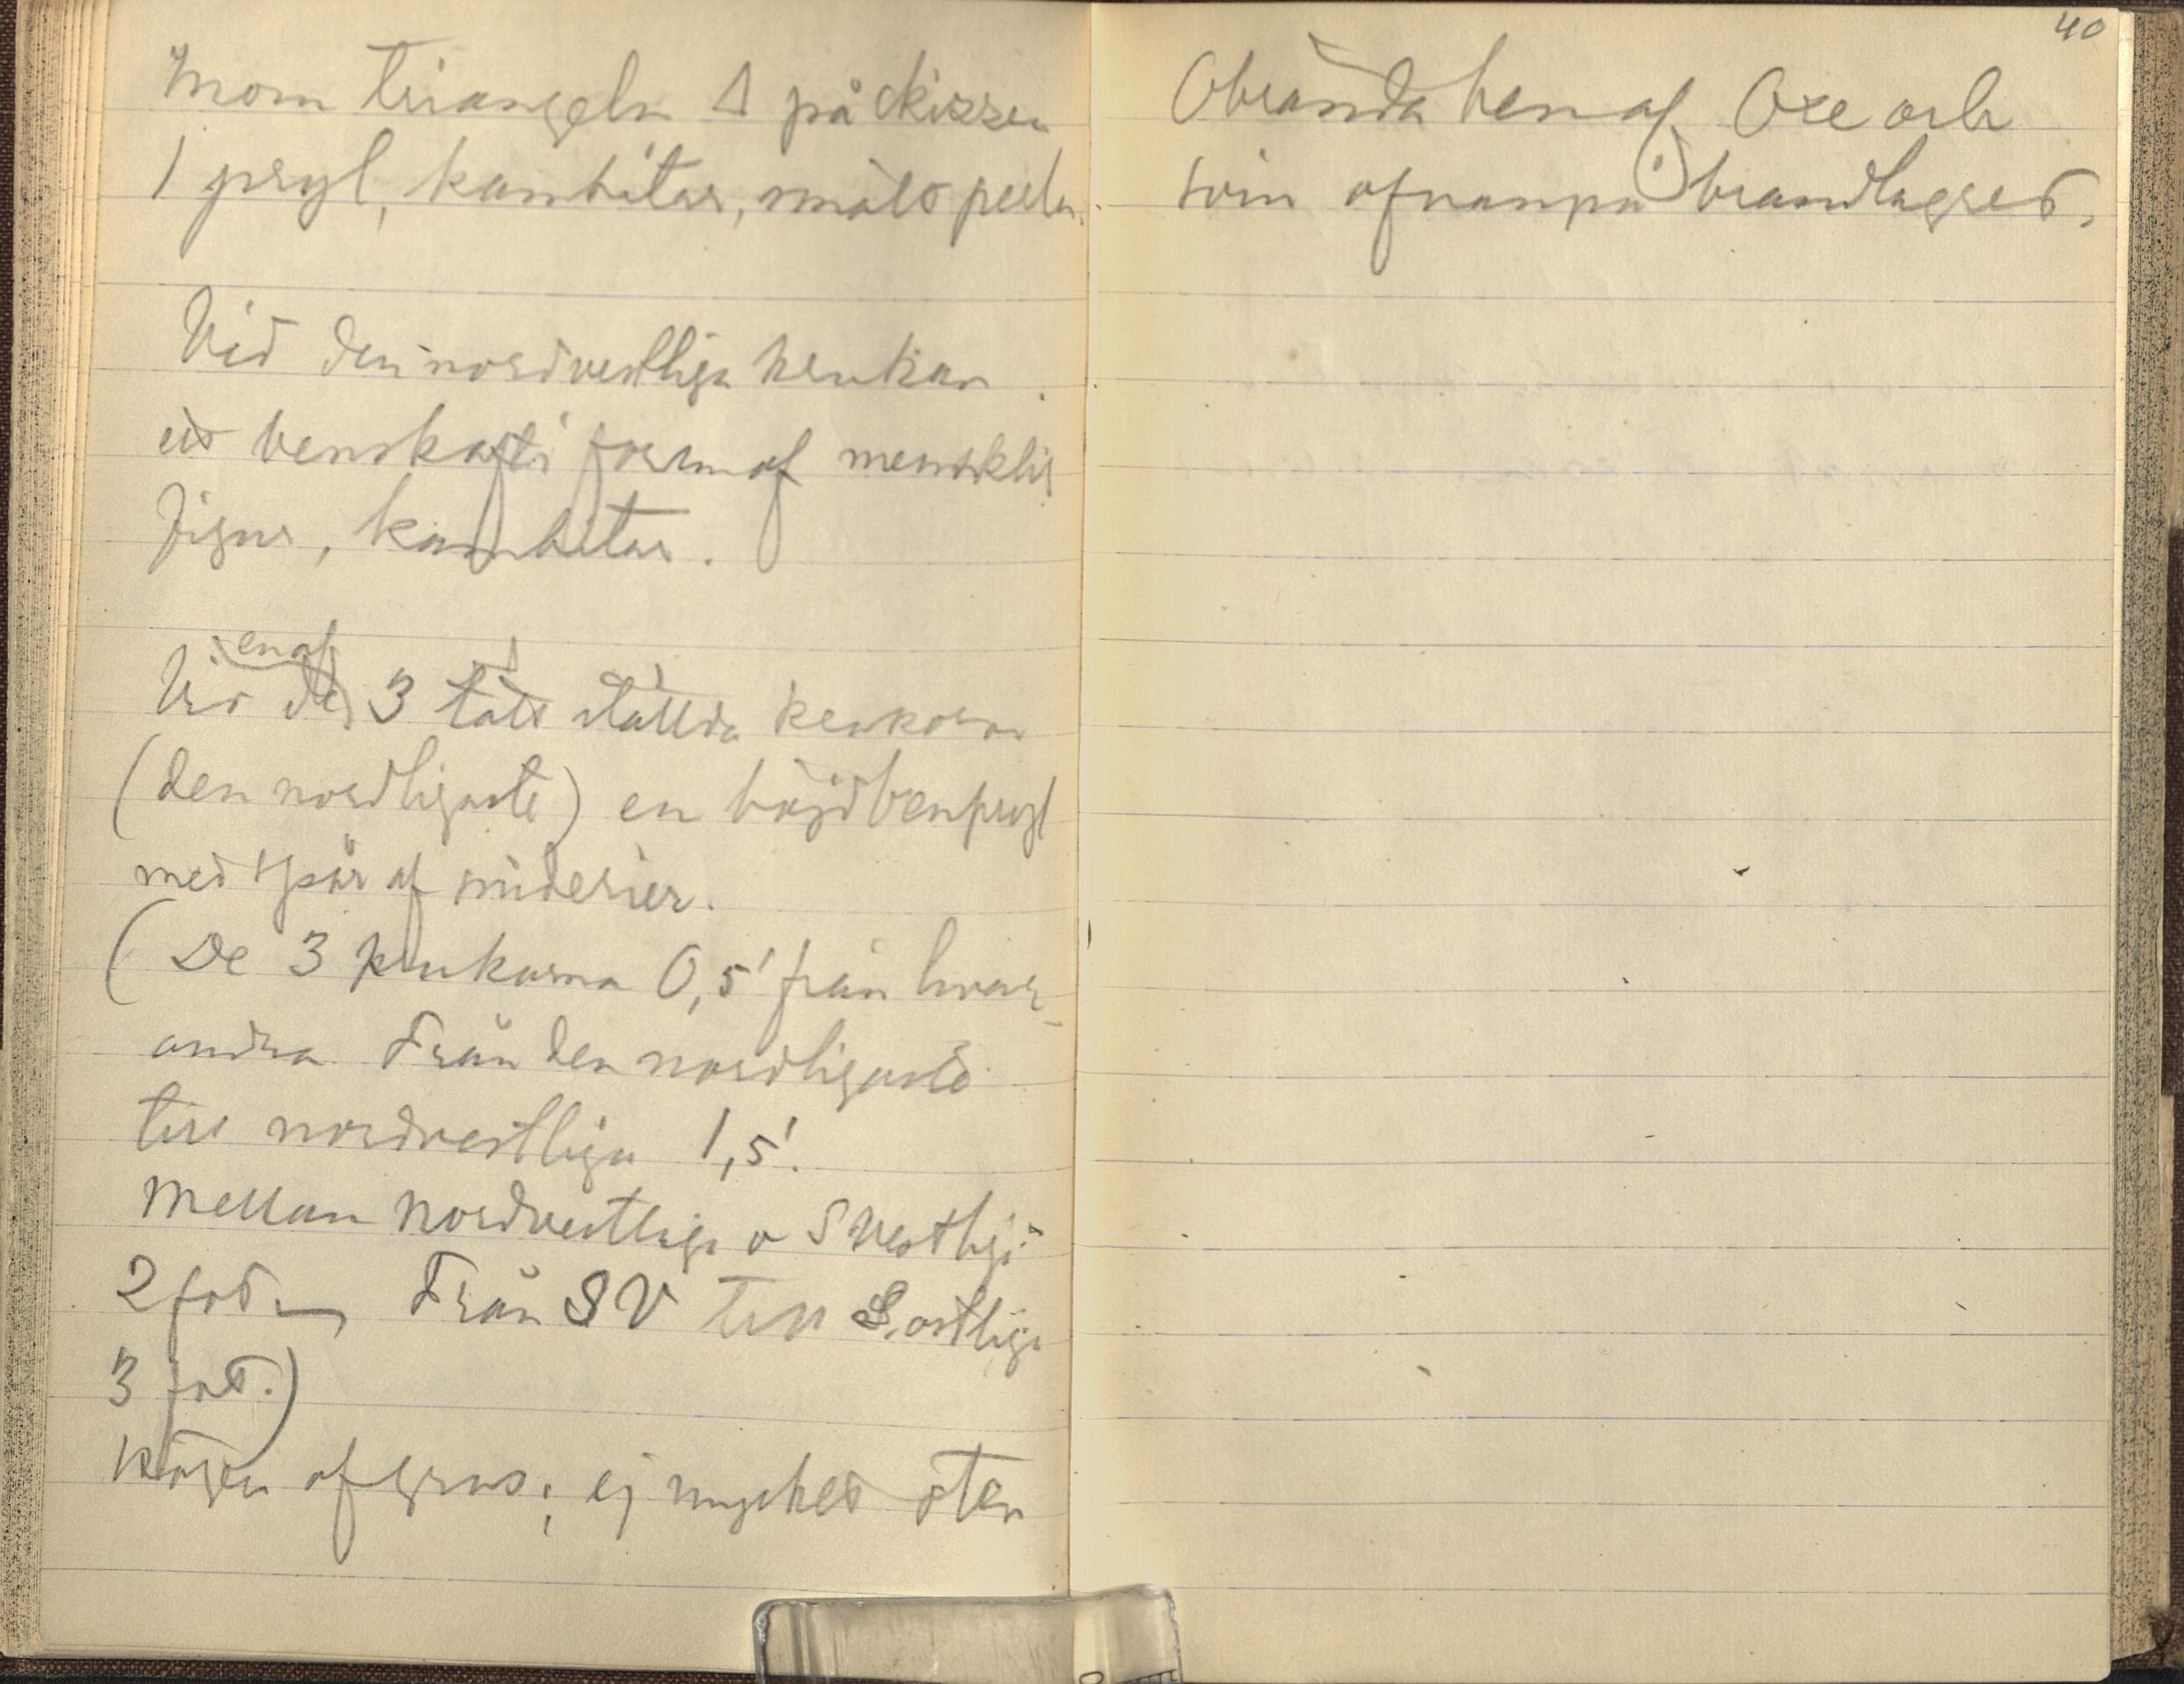 Inom triangeln Δ på skizzen
1 pryl, kambitar, smält perla.
Vid den nordvestliga krukan
ett benskaft i form af mensklig
figur, kambitar.
en af
Vid de 3 tätt ställda krukorna
(den nordligaste) en böjd benpryl
med spår af niderier.
(De 3 krukorna 0,5' från hvar-
andra. Från den nordligaste
till nordvestliga 1,5'.
Mellan nordvestliga o S Vestliga
2 fot. Från SV till S. ostliga
3 fot.)
Högen af grus; ej mycket sten
40
Obrända ben af Oxe och
svin ofvanpå brandlagret.